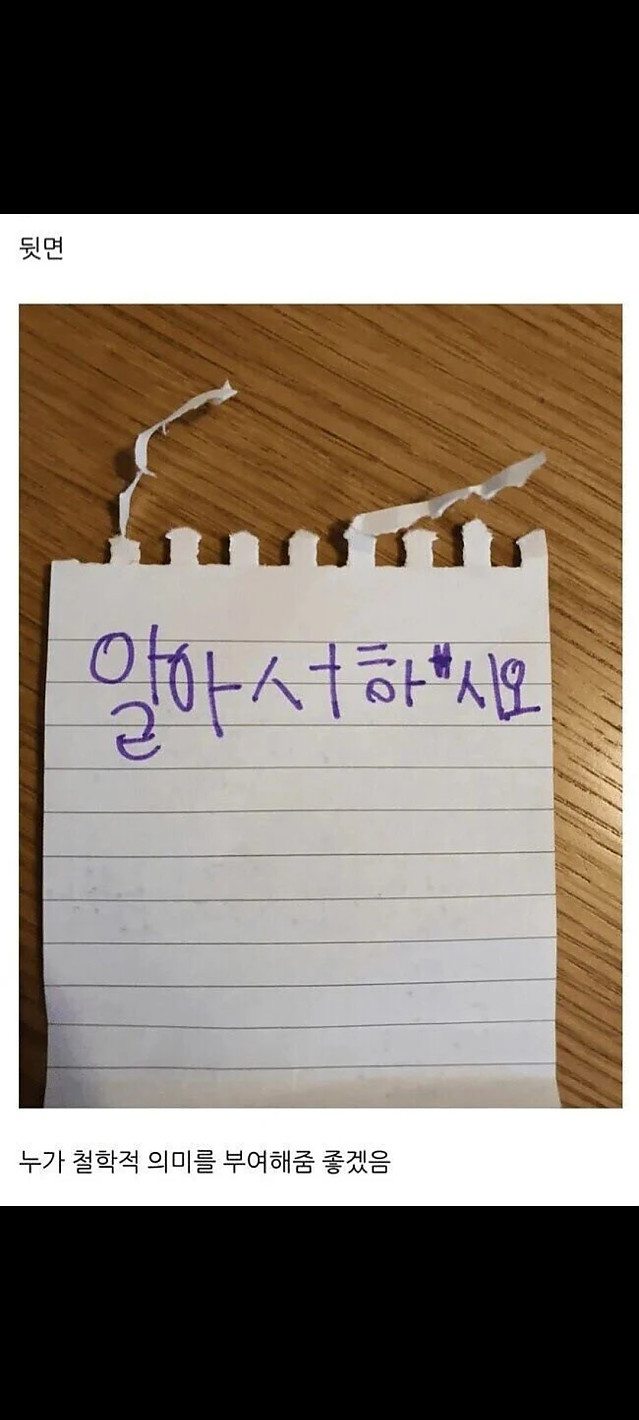 뒷면
알아서하시오
누가 철학적 의미를 부여해줌 좋겠음